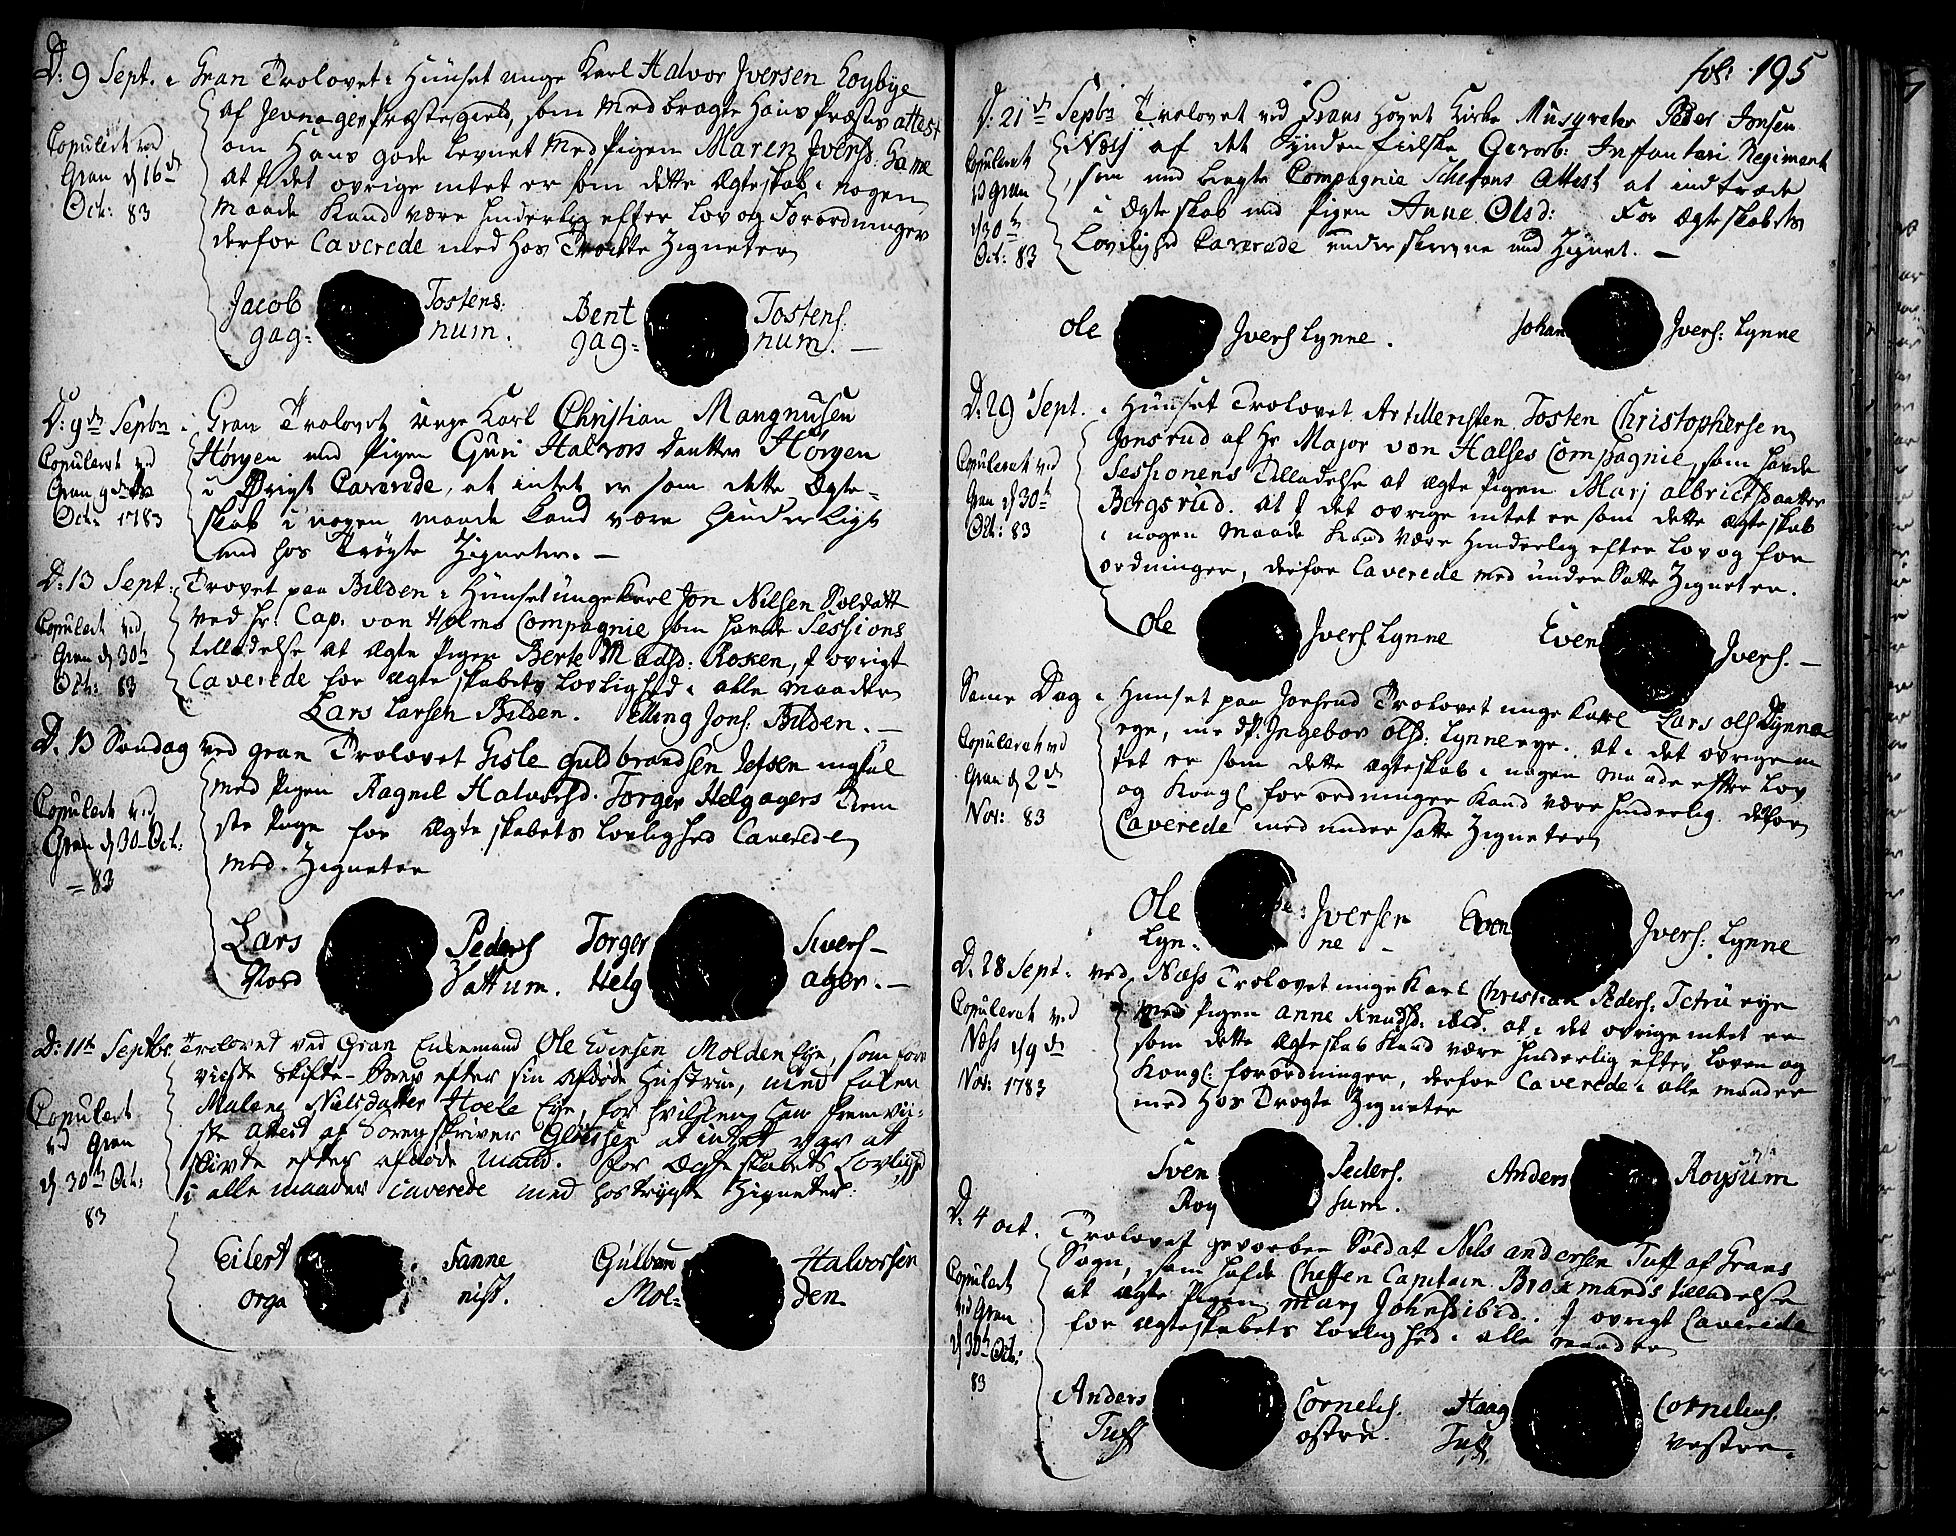 D: 9 Sept. i Gran Trolovet i Hunset unge Karl Halvor Iversen
af Jevnager Præstegield, som Medbragte Hans Præstes attest
om Hans gode Levnet Med Pigen Maren Ivers:
at I det ovrige intet er som dette Ægteskab i nogen
Maade Kand være hinderlig efter Lov og Forordninger
derfor Caverede med Hos Trockte Zigneter
Copulert ved
Gran d 16de
Oct: 83
Jacob Tostens: Bent Tostens:
gag: num. gag: num. —
D: 9de Septbr i Gran Trolovet unge Karl Christian Mangnusen
Hørgen med Pigen Guri Halvors Daatter Hørgen
i Øvrigt Caverede, at intet er som dette Ægte=
skab i nogen maade kand være hinderligt
med hos trøgte Zigneter. —
Copuleret ved
Gran
Oct: 1783
D: 13 Sept: Trovet paa Bilden i Hunset unge Karl Jon Nilsen Soldatt
ved Hr. Cap. von Holms Compagnie som havde Sessions
tilladelse at ægte Pigen Berte Madsd: Rosken, I ovrigt
Caverede for ægteskabets Lovlighed i alle Maader
Copulert ved
Gran d 30te
Oct: 83
Lars Larsen Bilden. Elling Jons: Bilden. —
D. 13 Søndag ved gran Trolovet Gisle Guldbrandsen
med Pigen Ragnil Halvorsd. Torger Helgagers
ste Pige for Ægteskabets Lovlighed Caverede
med Zigneter
Copulert ved
Gran d 30 Oct:
= 83
Lars Peders Torger Sivers —
Nord Vattum. Helg ager. —
D: 11te Septbr. Trolovet ved Gran Enkemand Ole Evensen Molden Eye, som fore
viiste Skifte-Brev efter sin afdøde Hustrue, med Enken
Malene Nielsdatter Eye, for hvilken han fremvii:
ste attest af Sorenskriver at intet var at
skivte efter afdøde Mand. for Ægteskabets Lovlighed
i alle maader Caverede med hostrygte Zigneter:
Copulert
ved Gran
d 30te Oct:
83
Eilert Sanne Gulbran Halvorsen
orga nist. Mol= den
fol: 195
D: 21de Septbr Trolovet ved Grans Hovet Kirke Musqveter Peder Jonsen
Næss af det Syndenfielske Geworb: Infanteri Regiment
som med bragte Compagnie Schefens Attest at indtræde
i Ægteskab med Pigen Anne Olsd: For Ægteskabets
Lovlighed Caverede underskrevne med Zignet. —
Copuleret
ved Gran
d 30te
Oct: 83
Ole Ivers Lynne. Johan Ivers: Lynne
D: 29 Sept. i Hunset Trolovet Artilleristen Tosten Christophersen
Jonsrud af Hr Major von Halses Compagnie, som havde
Sessionens Tilladelse at ægte Pigen Marj albrictsdaatter
Bergsrud. at I det ovrige intet er som dette ægteskab
i nogen Maade Kand være Hinderlig efter Lov og for
ordninger, derfor Caverede med underSatte Zigneter.
Copuleret ved
Gran d 30te
Oct: 83
Ole Ivers Lynne Even Ivers. —
Same Dag i Hunset paa Trolovet unge Karl Lars Ols Lynne
eye, m: P. Ingebor olsd: Lynneeye. at i det ovrige in
tet er som dette ægteskab i nogen Maade efter Lov
og Kongl forordninger Kand være hinderlig. derfor
Caverede med undersatte Zigneter
Copuleret ved
Gran d 2den
Nov: 83
Ole Iversen Even Ivers: Lynne
Lyn- ne -
D: 28 Sept: ved Næss Trolovet unge Karl Christian Peders: Tetru eye
med Pigen anne Knudsd: ibid. at i det ovrige intet er
som dette Ægteskab Kand være hinderlig efter Loven og
Kongl: forordninger, derfor Caverede i alle maader
med Hos Trogte Zigneter
Copuleret ved
Næss d 9de
Nov: 1783
Sven Peders. Anders Roysum
Roy sum.
D: 4 oct. Trolovet gevorben Soldat Nils andersen Tuff af Grans
Sogn, som hafde Cheffen Capitain Tilladelse
at ægte Pigen Marj Johnsd ibid. I ovrigt Caverede
for Ægteskabets Lovlighed i alle maader
Copulert
ved Gran
d 30te Oct:
83
Anders Cornels. Haag Cornelius.
Tuff østre. Tuff vestre.